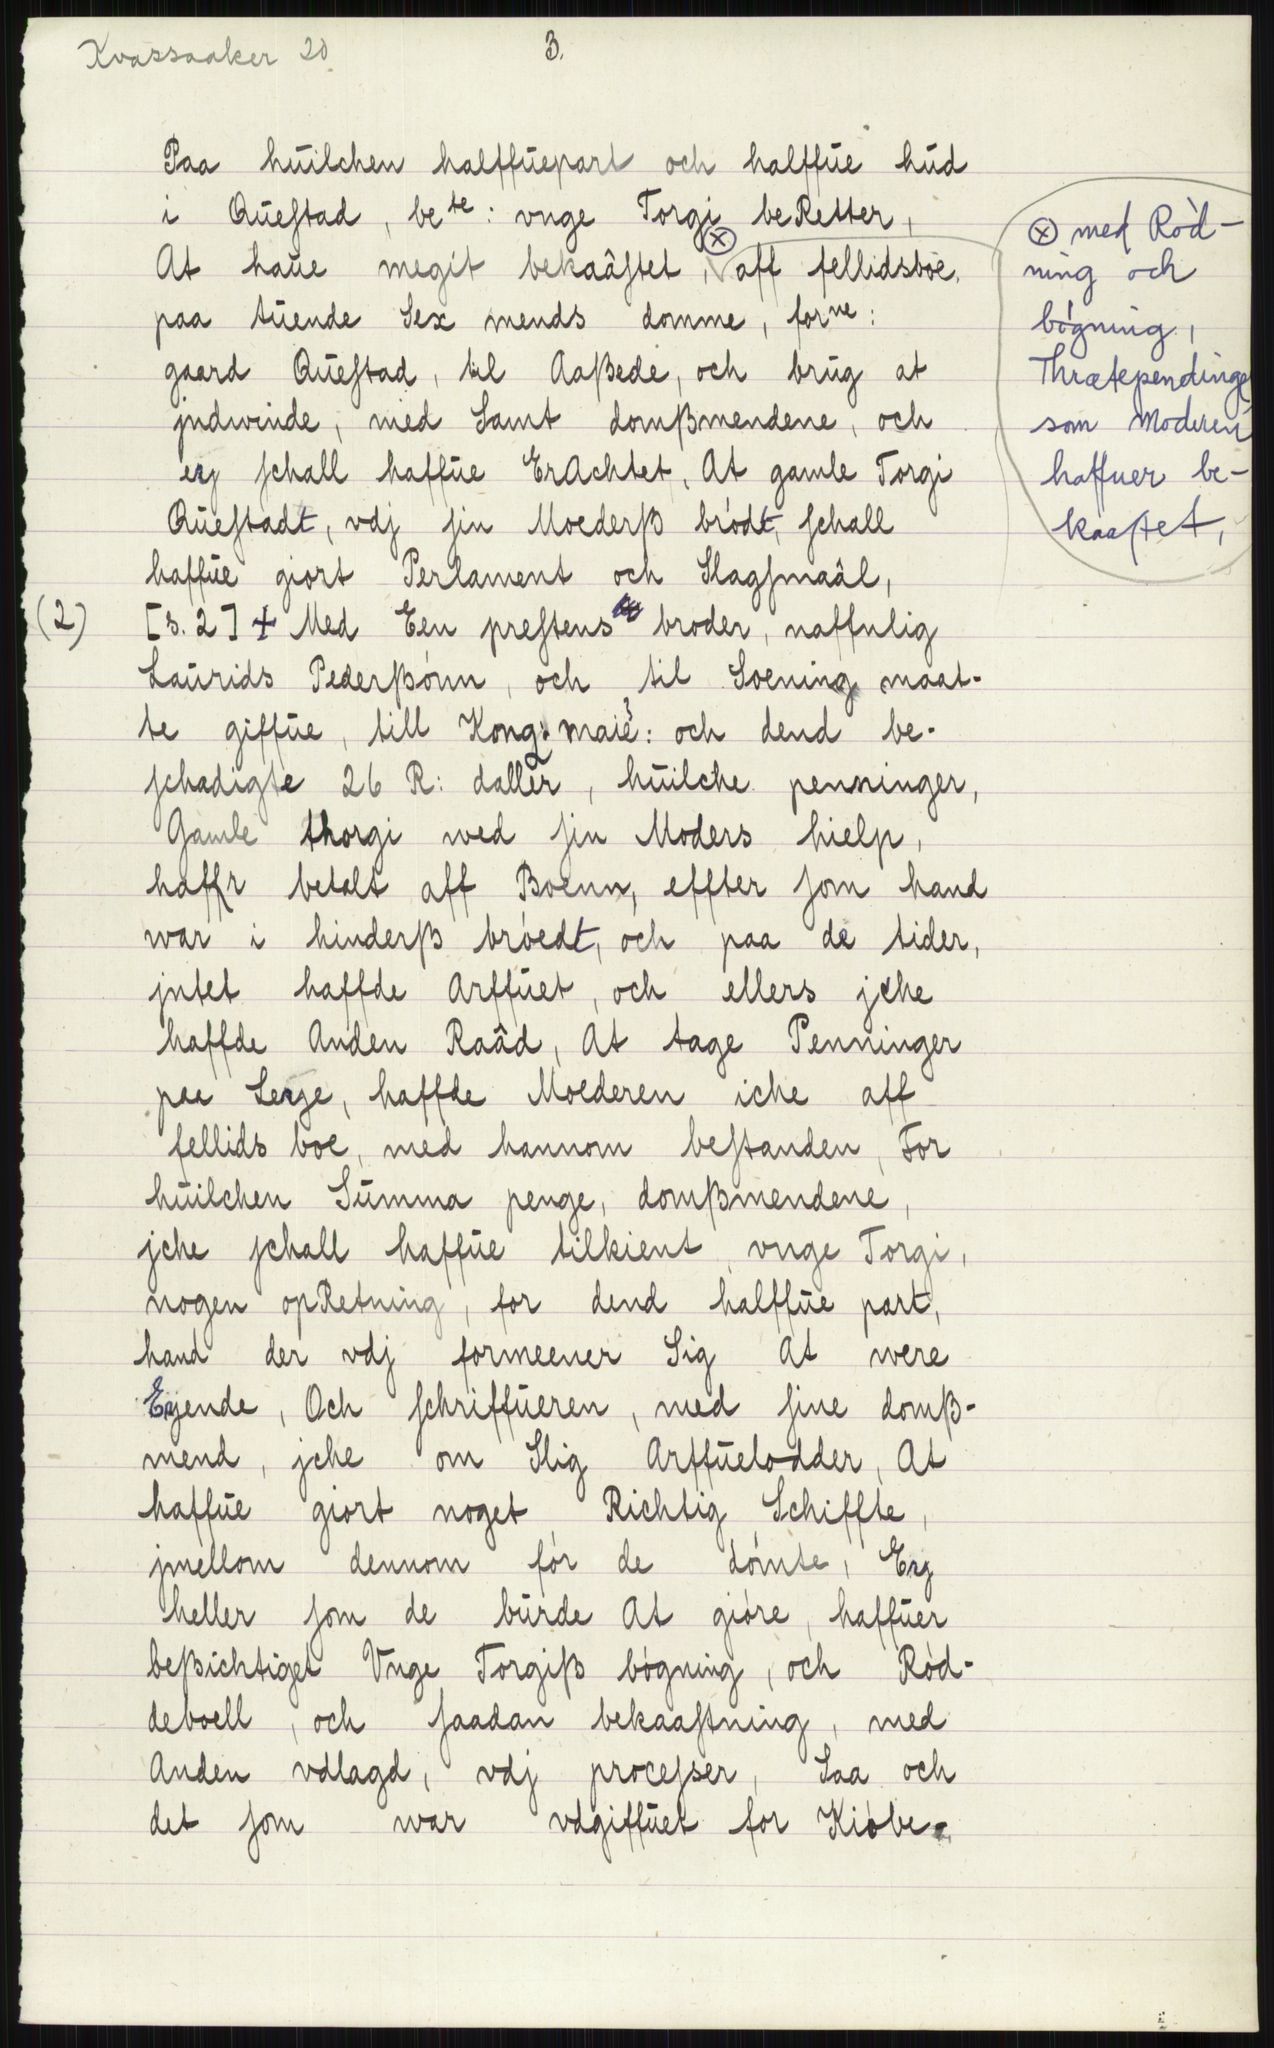 Kvassaaker 20
3.
Paa huilchen halffuepart och halffue hud
i Queſtad, bete: vnge Torgi beRetter,
At haue megit bekaâſtet, ⊗ aff fellidsboe,
paa tuende Sex mends domme, forne:
gaard Queſtad, til Aaßede, och brug at
jndwinde, med Samt domßmendene, och
ey ſchall haffue ErAchtet, At gamle Torgi
Queſtadt, vdj ſin Moederß brödt, ſchall
haffue giort Perlament och Slagſmaâl,
(2) [s. 2] + Med Een preſtens broder, naffnlig
Laurids Pederßönn, och til Soening maat-
te giffue, till Kong: maie: och dend be-
ſchadigte 26 R: daller, huilche penninger,
Gamle thorgi med ſin Moders hielp,
haffr betalt aff Boenn, effter ſom hand
war i hinderß bröedt, och paa de tider,
jntet haffde Arffuet, och ellers jche
haffde Anden Raâd, At tage Penninger
paa Leye, haffde Moederen iche aff
fellids boe, med hannom beſtanden, For
huilchen Summa penge, domßmendene,
jche ſchall haffue tilkient vnge Torgi,
nogen opRetning, for dend halffue part,
hand der vdj formeener Sig At were
Eyende, Och ſchriffueren, med ſine domß-
mend, jche om Slig Arffuelodder, At
haffue giort noget Richtig Schiffte,
jmellom dennom för de dömte, Ey
heller ſom de burde At giöre, haffuer
beßichtiget Vnge Torgiß bögning, och Röd-
deboell, och ſaadan bekaaſtning, med
Anden vdlagd, vdj proceſser, Saa och
det ſom war vdgiffuet for Kiöbe-
⊗ med Röd-
ning och
bögning,
Thrætependinge
som Moderen
haffuer be-
kaaſtet,